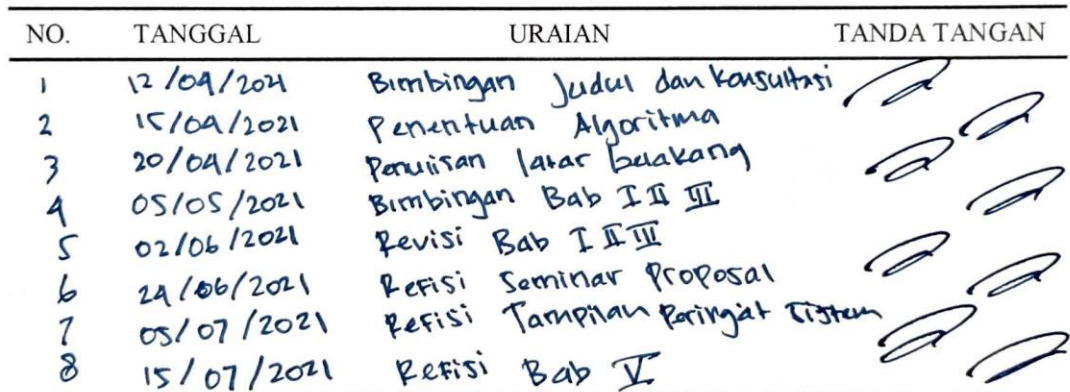 NO. TANGGAL URAIAN TANDA TANGAN
1 12/04/2021 Bimbingan Judul dan Konsultasi
2 15/04/2021 Penentuan Algoritma
3 20/04/2021 Penulisan latar belakang
4 05/05/2021 Bimbingan Bab I II III
5 02/06/2021 Revisi Bab I II III
6 24/06/2021 Refisi Seminar Proposal
7 05/07/2021 Refisi Tampilan Peringat Sistem
8 15/07/2021 Refisi Bab V